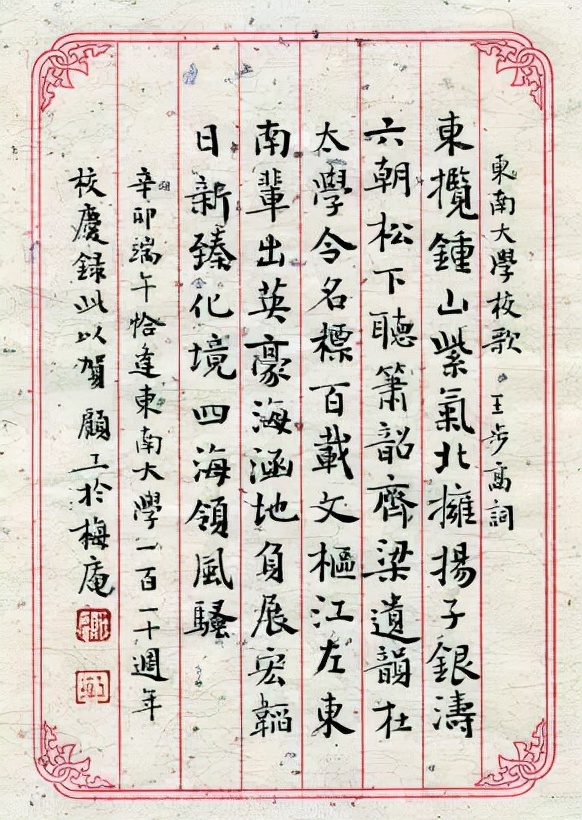 東南大學校歌 王步高詞
東攬鍾山紫氣北擁揚子銀濤
六朝松下聽簫韶齊梁遺韻在
太學令名標百載文樞江左東
南輩出英豪海涵地負展宏韜
日新臻化境四海領風騷
辛卯端午恰逢東南大學一百一十週年
校慶録此以賀 顧工於梅庵